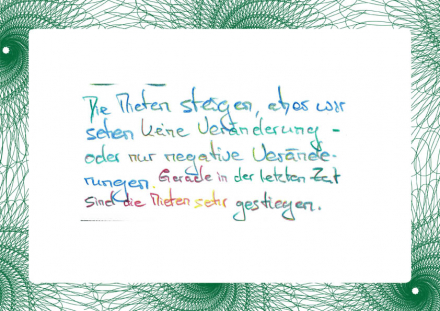 Die Mieten steigen, etwas wir
sehen keine Veränderung -
oder nur negative Verände-
rungen. Gerade in der letzten Zeit
sind die Mieten sehr gestiegen.